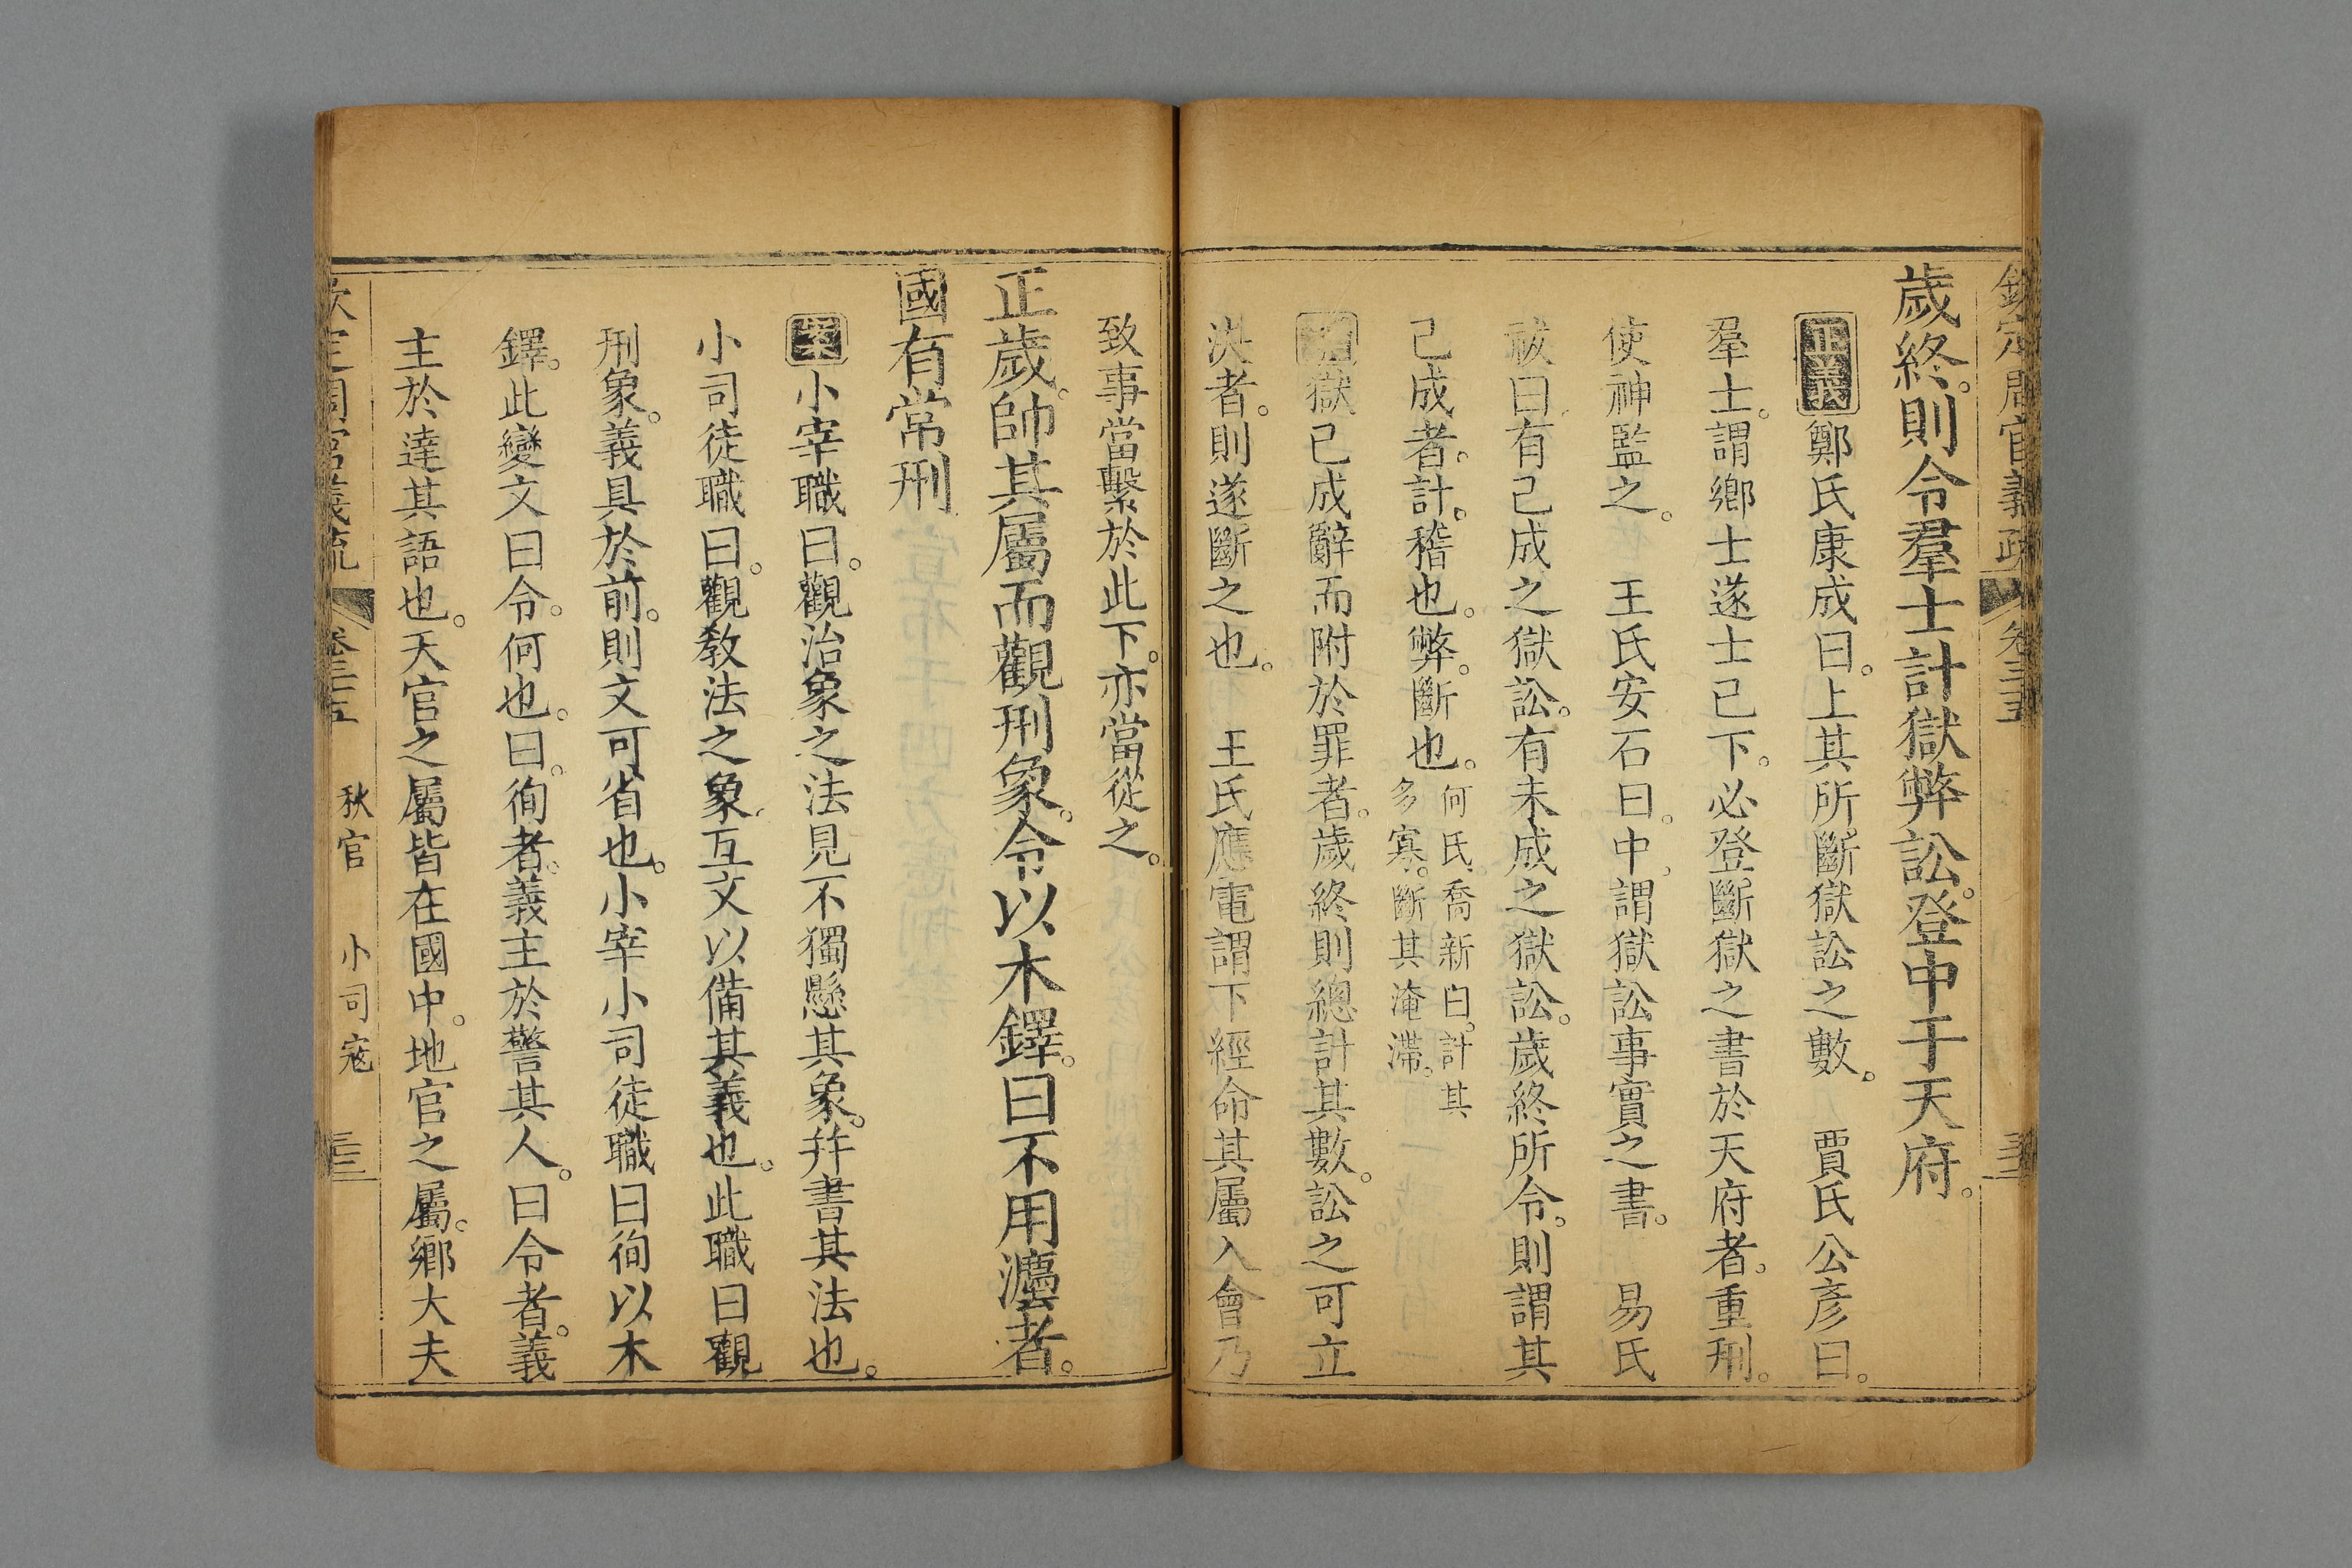 欽定周官義疏 卷三十五
歲終。則令羣士計獄弊訟。登中于天府。
正義鄭氏康成曰。上其所斷獄訟之數。 賈氏公彥曰。
羣士。謂鄉士遂士已下。必登斷獄之書於天府者。重刑。
使神監之。 王氏安石曰。中。謂獄訟事實之書。 易氏
祓曰。有已成之獄訟。有未成之獄訟。歲終所令。則謂其
已成者。計。稽也。弊。斷也。何氏喬新曰。計其
多寡。斷其淹滯。
獄已成辭而附於罪者。歲終則總計其數。訟之可立
決者。則遂斷之也。 王氏應電謂下經命其屬入會乃
致事當繫於此下。亦當從之。
正歲。帥其屬而觀刑象。令以木鐸。曰不用灋者。
國有常刑
案小宰職曰。觀治象之法見不獨懸其象。幷書其法也。
小司徒職曰。觀教法之象。互文以備其義也。此職曰觀
刑象。義具於前。則文可省也。小宰小司徒職曰徇以木
鐸。此變文曰令。何也。曰。徇者。義主於警其人。曰令者。義
主於達其語也。天官之屬皆在國中。地官之屬。鄉大夫
欽定周官義疏 卷三十五 秋官 小司寇